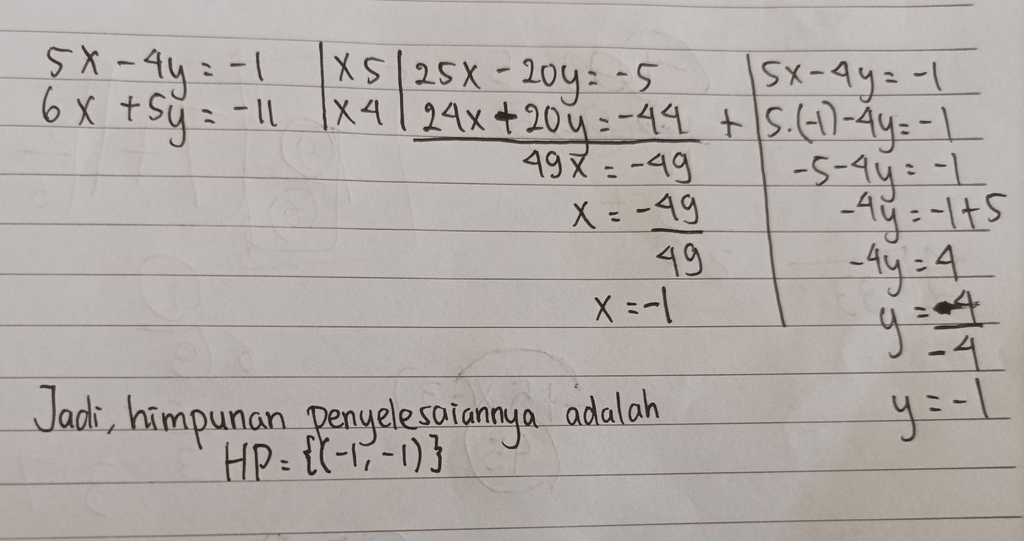 5x - 4y = -1 | x5 | 25x - 20y = -5 | 5x - 4y = -1
6x + 5y = -11 | x4 | 24x + 20y = -44 + | 5.(-1) - 4y = -1
49x = -49 | -5 - 4y = -1
x = -49 | -4y = -1 + 5
49 | -4y = 4
x = -1 | y = 4
-4
Jadi, himpunan penyelesaiannya adalah y = -1
HP = {(-1, -1)}